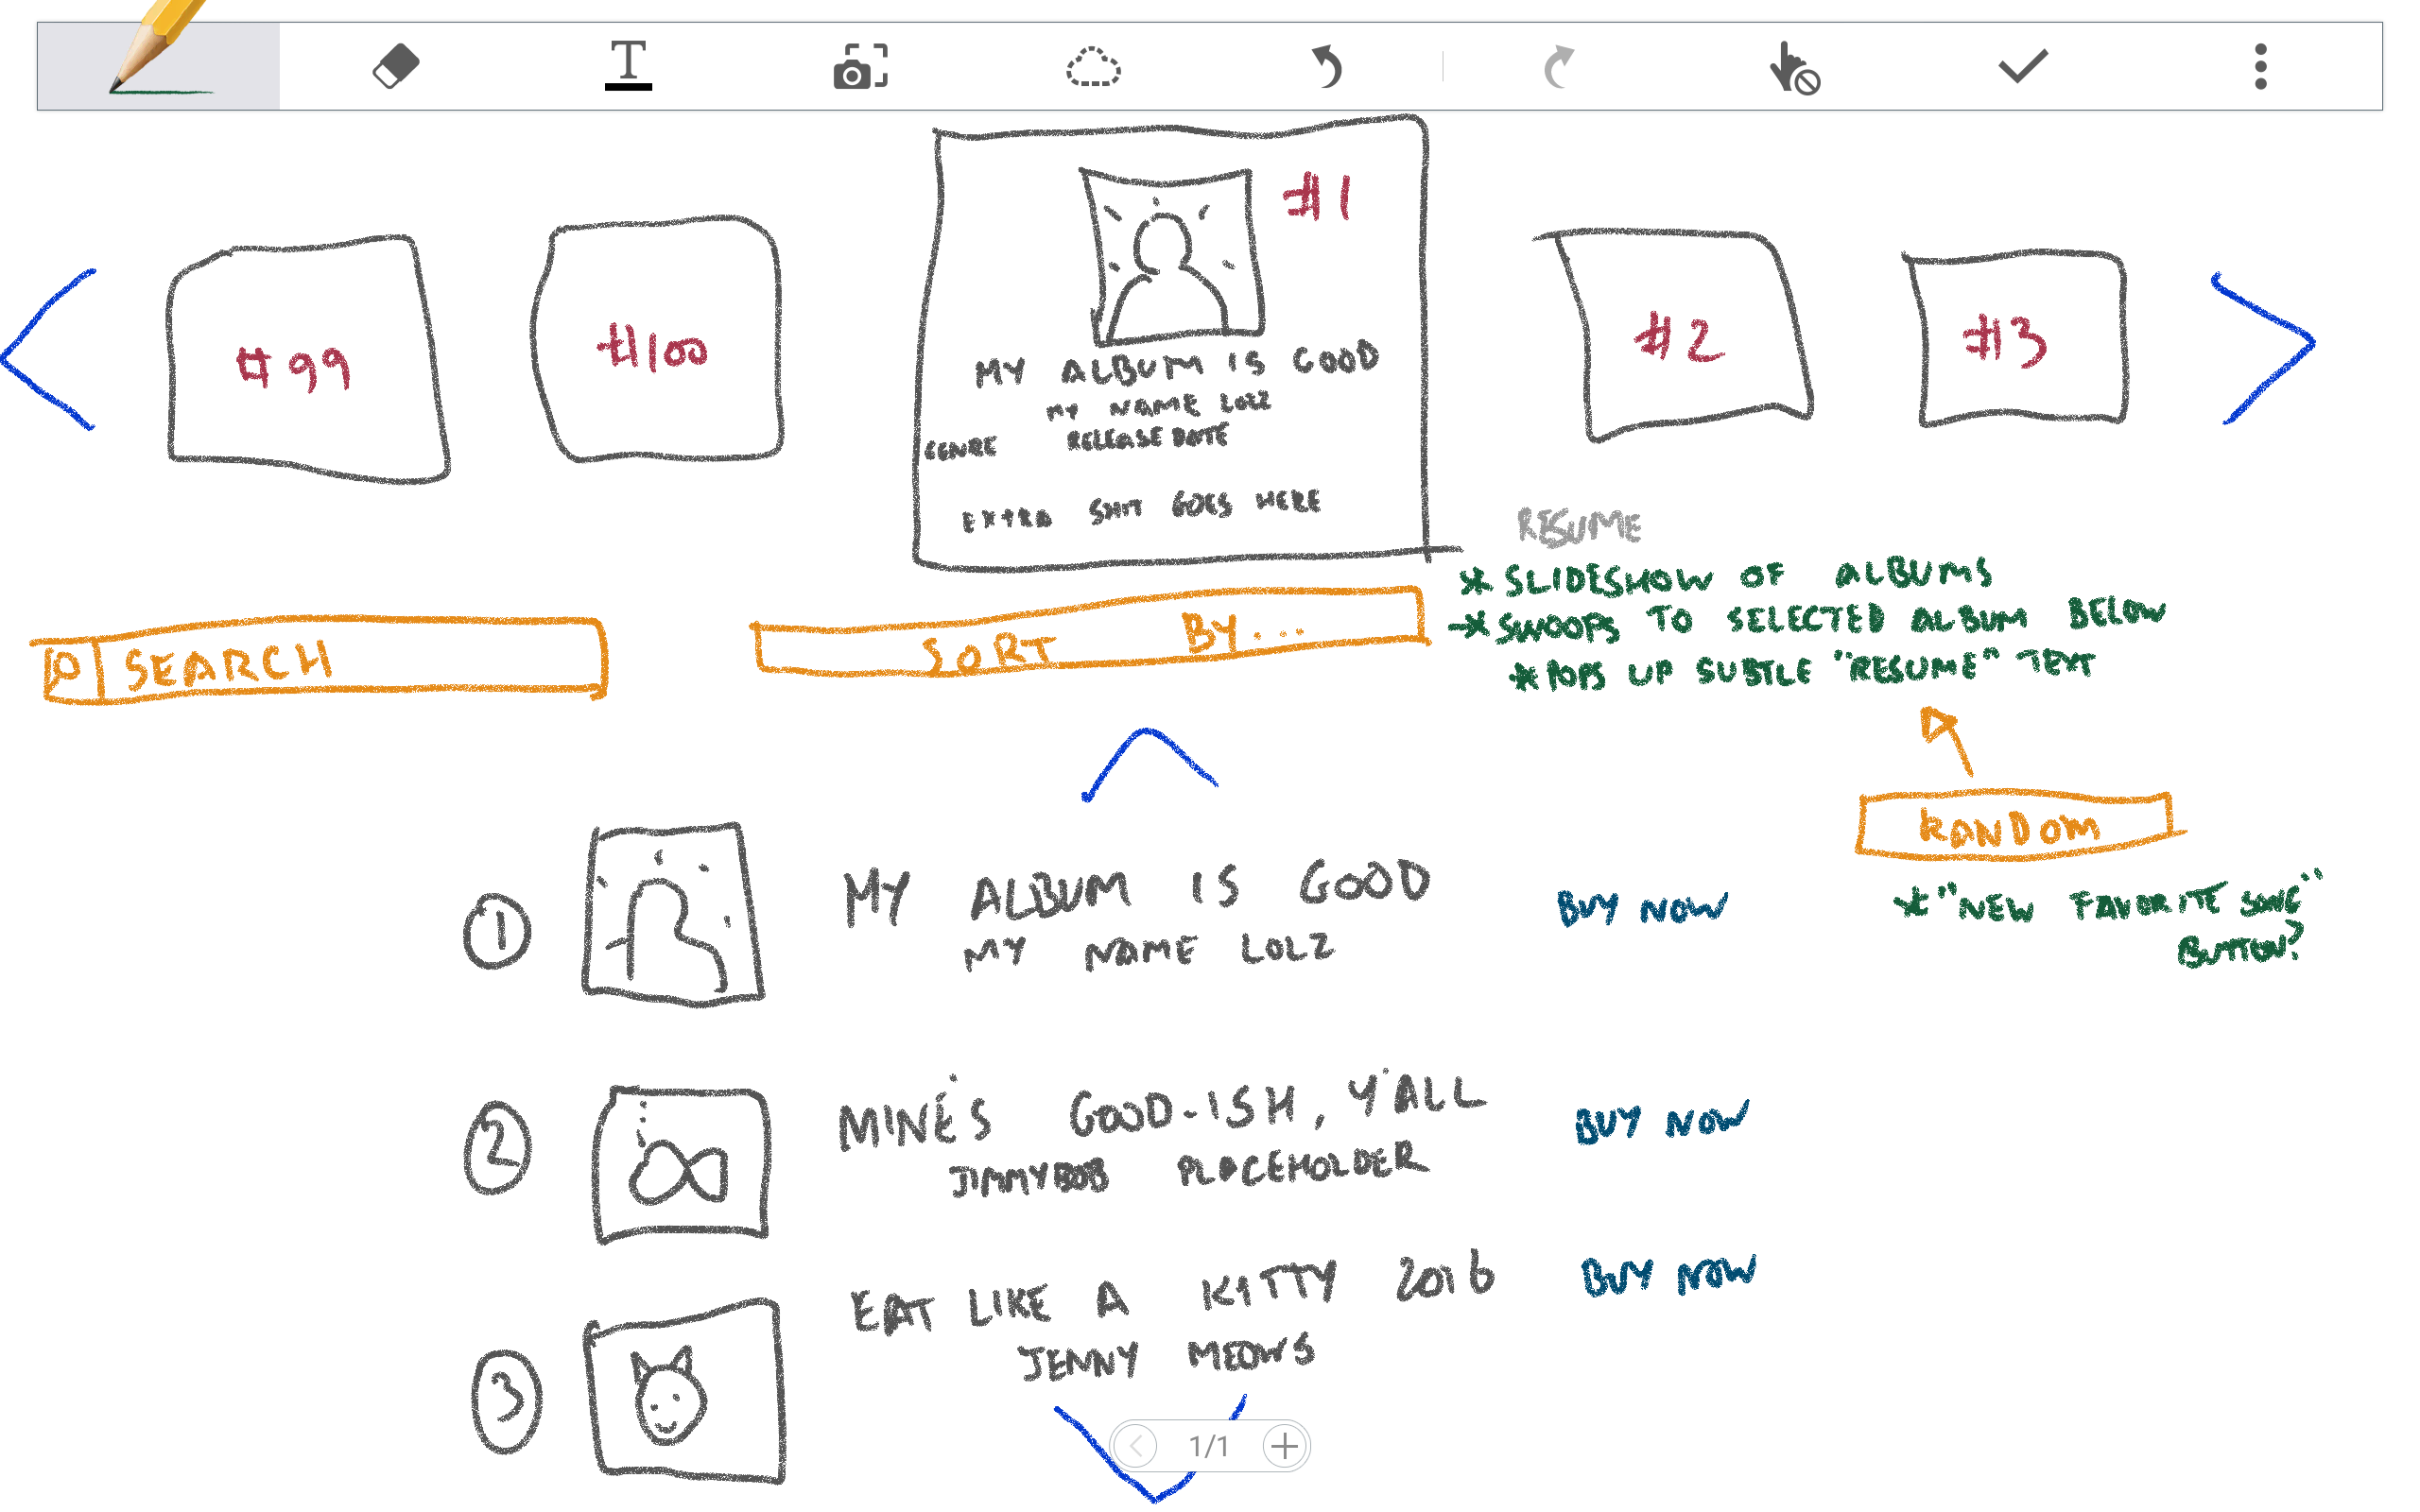 T
#1
#99
#100
#2
#3
MY ALBUM IS GOOD
MY NAME LOLZ
GENRE RELEASE DATE
EXTRA SHIT GOES HERE
RESUME
* SLIDESHOW OF ALBUMS
* SWOOPS TO SELECTED ALBUM BELOW
* POPS UP SUBTLE "RESUME" TEXT
SEARCH
SORT BY...
RANDOM
* "NEW FAVORITE SONG"
BUTTON?
1 MY ALBUM IS GOOD BUY NOW
MY NAME LOLZ
2 MINE'S GOOD-ISH, Y'ALL BUY NOW
JIMMYBOB PLACEHOLDER
3 EAT LIKE A KITTY 2016 BUY NOW
JENNY MEOWS
1/1